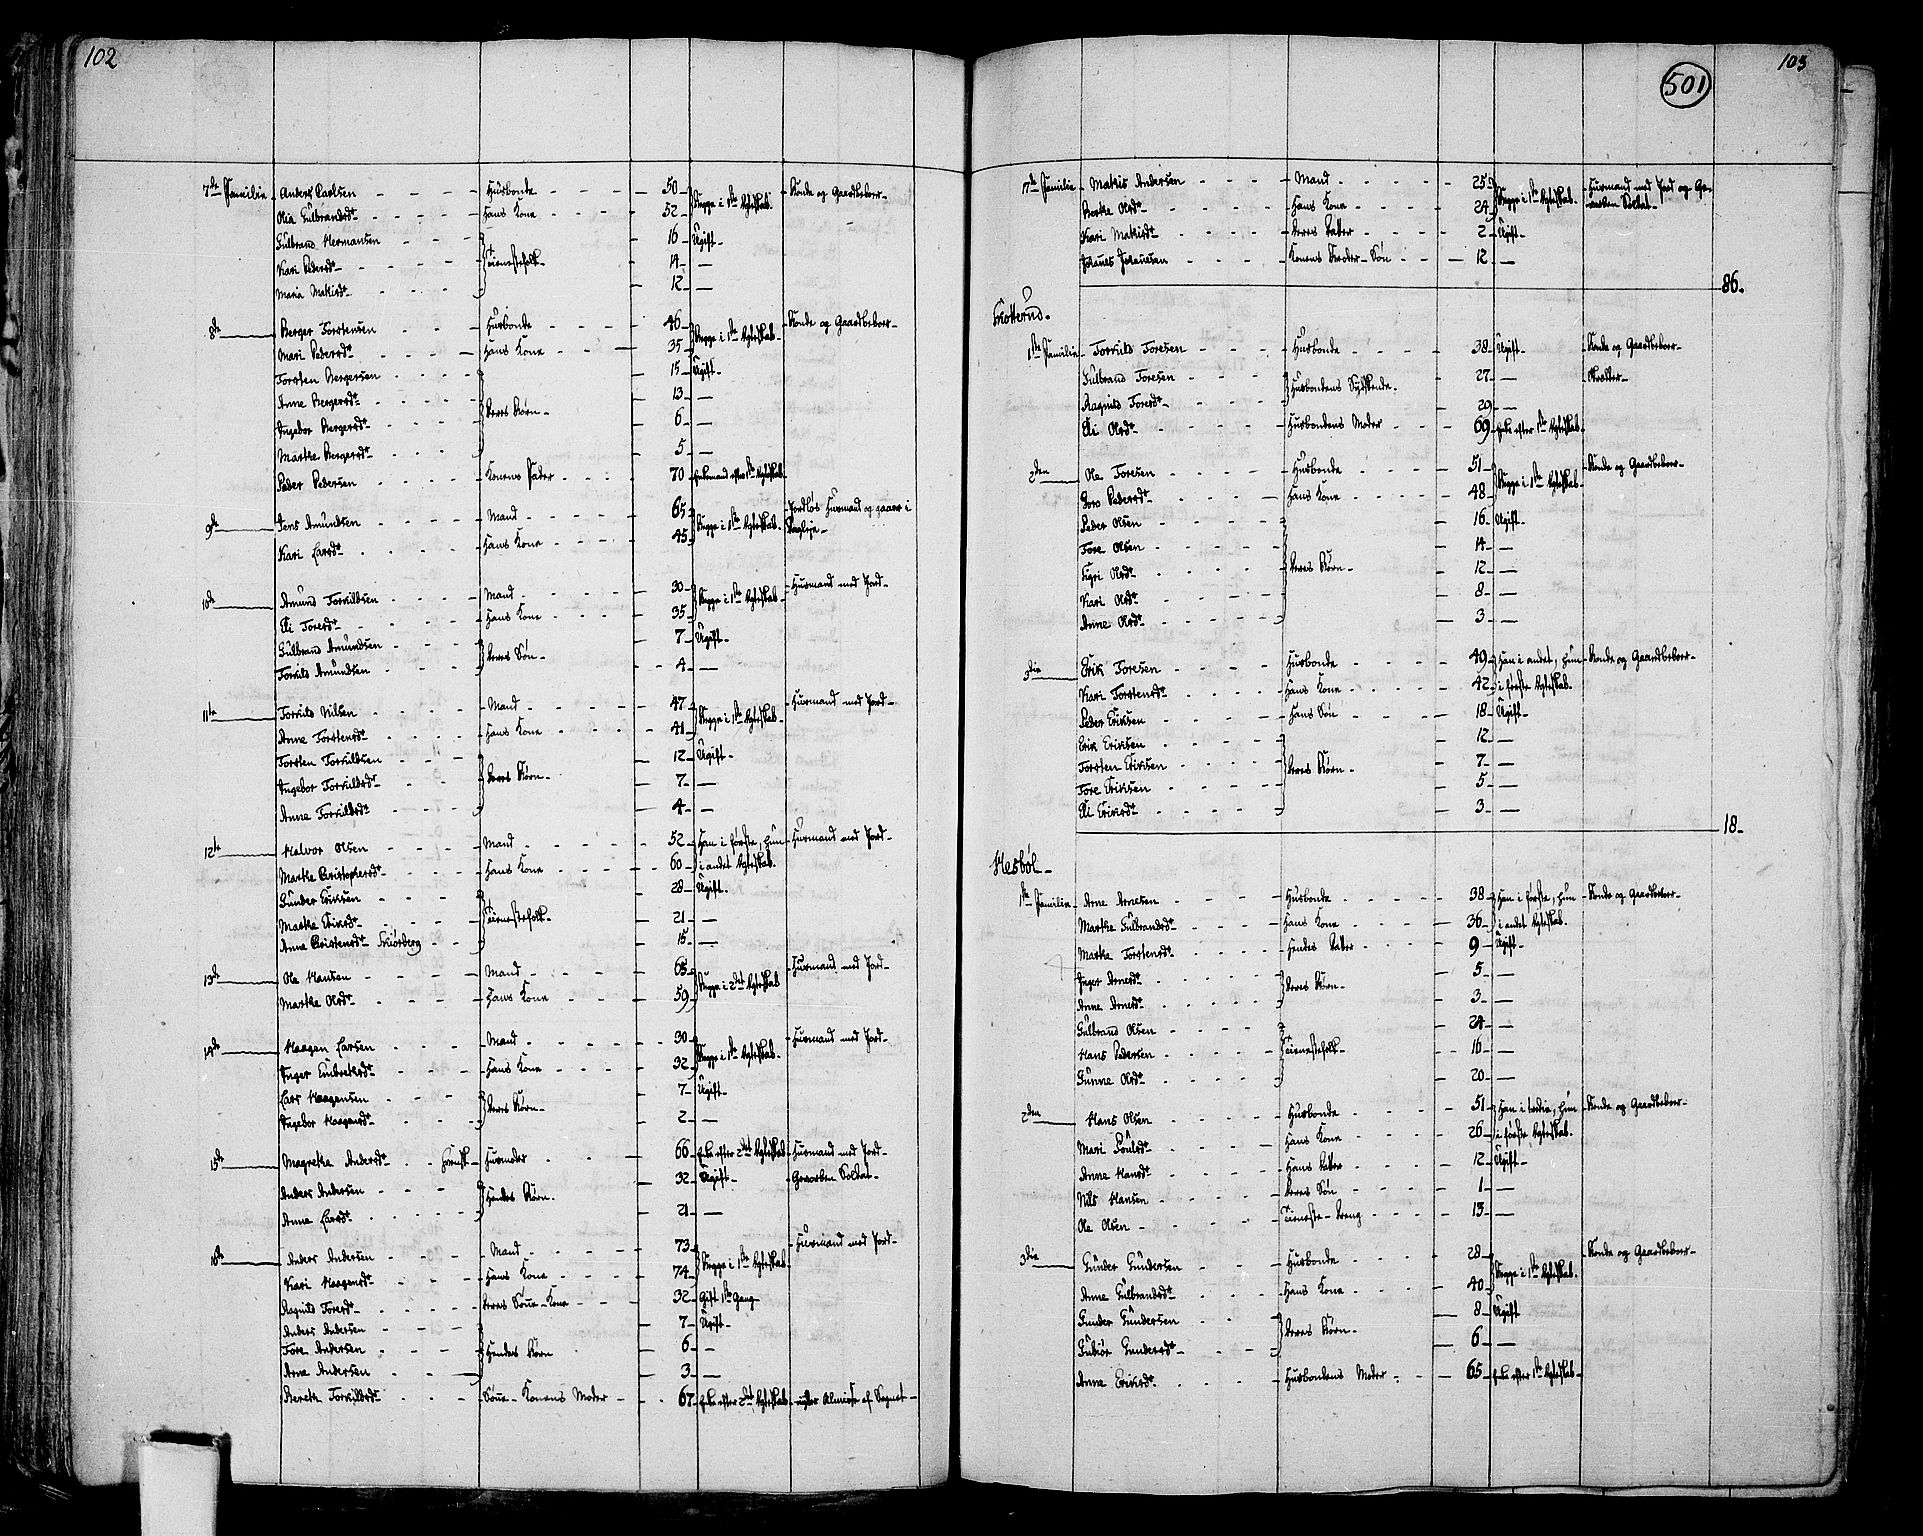 102
7de Familie Anders Paulsen Husbonde 50 Begge i 1ste Ægteskab. Bonde og Gaardbeboer
Olia Gulbrandsdr Hans Kone 52
Gulbrand Hermansen Tienestefolk 16 Ugift
Kari Pedersdr 14 —
Maria Mathisdr 12 —
8de Berger Torstensen Husbonde 46 Begge i 1ste Ægteskab Bonde og Gaardbeboer
Mari Pedersdr Hans Kone 35
Torsten Bergersen Deres Børn 15 Ugift
Anne Bergersdr 13 —
Ingebor Bergersdr 6 —
Marthe Bergersdr 5 —
Peder Pedersen Konens Fader 70 Enkemand efter 1ste Ægteskab
9de Jens Amundsen Mand 65 Begge i 1ste Ægteskab Jordløs Huusmand og gaaer i
Kari Larsdr Hans Kone 45 Dagleje
10de Amund Torkildsen Mand 30 Begge i 1ste Ægteskab Huusmand med Jord
Eli Toresdr Hans Kone 35
Gulbrand Amundsen Deres Søn 7 Ugift
Torkild Amundsen 4 —
11te Torkild Nilsen Mand 47 Begge i 1ste Ægteskab Huusmand med Jord
Anne Torstensdr Hans Kone 41
Torsten Torkildsen Deres Børn 12 Ugift
Ingebor Torkildsdr 7 —
Anne Torkildsdr 4 —
12te Halvor Olsen Mand 52 Han i første, hun Huusmand med Jord
Marthe Christophersdr Hans Kone 60 i andet Ægteskab
Gunder Eriksen Tienestefolk 28 Ugift
Marthe Eriksdr 21 —
Anne Christensdr Skiørberg 15 —
13de Ole Hansen Mand 65 Begge i 2det Ægteskab Huusmand med Jord
Marthe Olsdr Hans Kone 59
14de Haagen Larsen Mand 30 Begge i 1ste Ægteskab Huusmand med Jord
Inger Embretsdr Hans Kone 32
Lars Haagensen Deres Børn 7 Ugift
Ingebor Haagensdr 2 —
15de Magrethe Andersdr Huusmoder 66 Enke efter 2det Ægteskab Huusmand med Jord
Anders Andersen Hendes Børn 32 Ugift Gevorben Soldat
Anne Larsdr 21 —
16de Anders Andersen Mand 73 Begge i 1ste Ægteskab Huusmand med Jord
Kari Haagensdr Hans Kone 74
Ragnild Toresdr Deres Sønne-Kone 32 Gift 1ste Gang
Anders Andersen Hendes Børn 7 Ugift
Tore Andersen 6 —
Arne Andersen 3 —
Bereth Torkildsdr Sønne-Konens Moder 67 Enke efter 2det Ægteskab nyder Almisse af Sognet
103
501
17de Familie Mathis Andersen Mand 25 Begge i 1ste Ægteskab Huusmand med Jord og Ge-
Berthe Olsdr Hans Kone 24 worben Soldat
Kari Mathisdr Deres Datter 2 Ugift
Johannes Johannesen Konens Broder-Søn 12 —
86.
Skotterud
1ste Familie Torkild Toresen Husbonde 38 Ugift Bonde og Gaardbeboer
Gulbrand Toresen Husbondens Sydskende 27 —
Ragnild Toresdr 29 —
Eli Olsdr Husbondens Moder 69 Enke efter 1ste Ægteskab
2den Ole Toresen Husbonde 51 Begge i 1ste Ægteskab Bonde og Gaardbeboer
Goro Pedersdr Hans Kone 48
Peder Olsen Deres Børn 16 Ugift
Tore Olsen 14 —
Sigri Olsdr 12 —
Kari Olsdr 8 —
Anne Olsdr 3 —
3die Erik Toresen Husbonde 49 Han i andet, hun Bonde og Gaardbeboer
Kari Torstensdr Hans Kone 42 i første Ægteskab
Peder Eriksen Hans Søn 18 Ugift
Erik Eriksen Deres Børn 12 —
Torsten Eriksen 7 —
Tore Eriksen 5 —
Eli Eriksdr 3 —
18
Hesbøl
1ste Familie Arne Arnesen Husbonde 38 Han i første, hun Bonde og Gaardbeboer
Marthe Gulbrandsdr Hans Kone 36 i andet Ægteskab
Marthe Torstensdr Hendes Datter 9 Ugift
Inger Arnesdr Deres Børn 5 —
Anne Arnesdr 3 —
Gulbrand Olsen Tienestefolk 24 —
Hans Pedersen 16 —
Gunne Olsdr 20 —
2den Hans Olsen Husbonde 51 Han i tredie, hun Bonde og Gaardbeboer
Mari Poulsdr Hans Kone 26 i første Ægteskab
Anne Hansdr Hans Datter 12 Ugift
Nils Hansen Deres Søn 1 —
Ole Olsen Tieneste-Dreng 13 —
3die Gunder Gundersen Husbonde 28 Begge i 1ste Ægteskab Bonde og Gaardbeboer
Anne Gulbrandsdr Hans Kone 40
Gunder Gundersen Deres Børn 8 Ugift
Gubiør Gundersdr 6 —
Anne Eriksdr Husbondens Moder 65 Enke efter 1ste Ægteskab